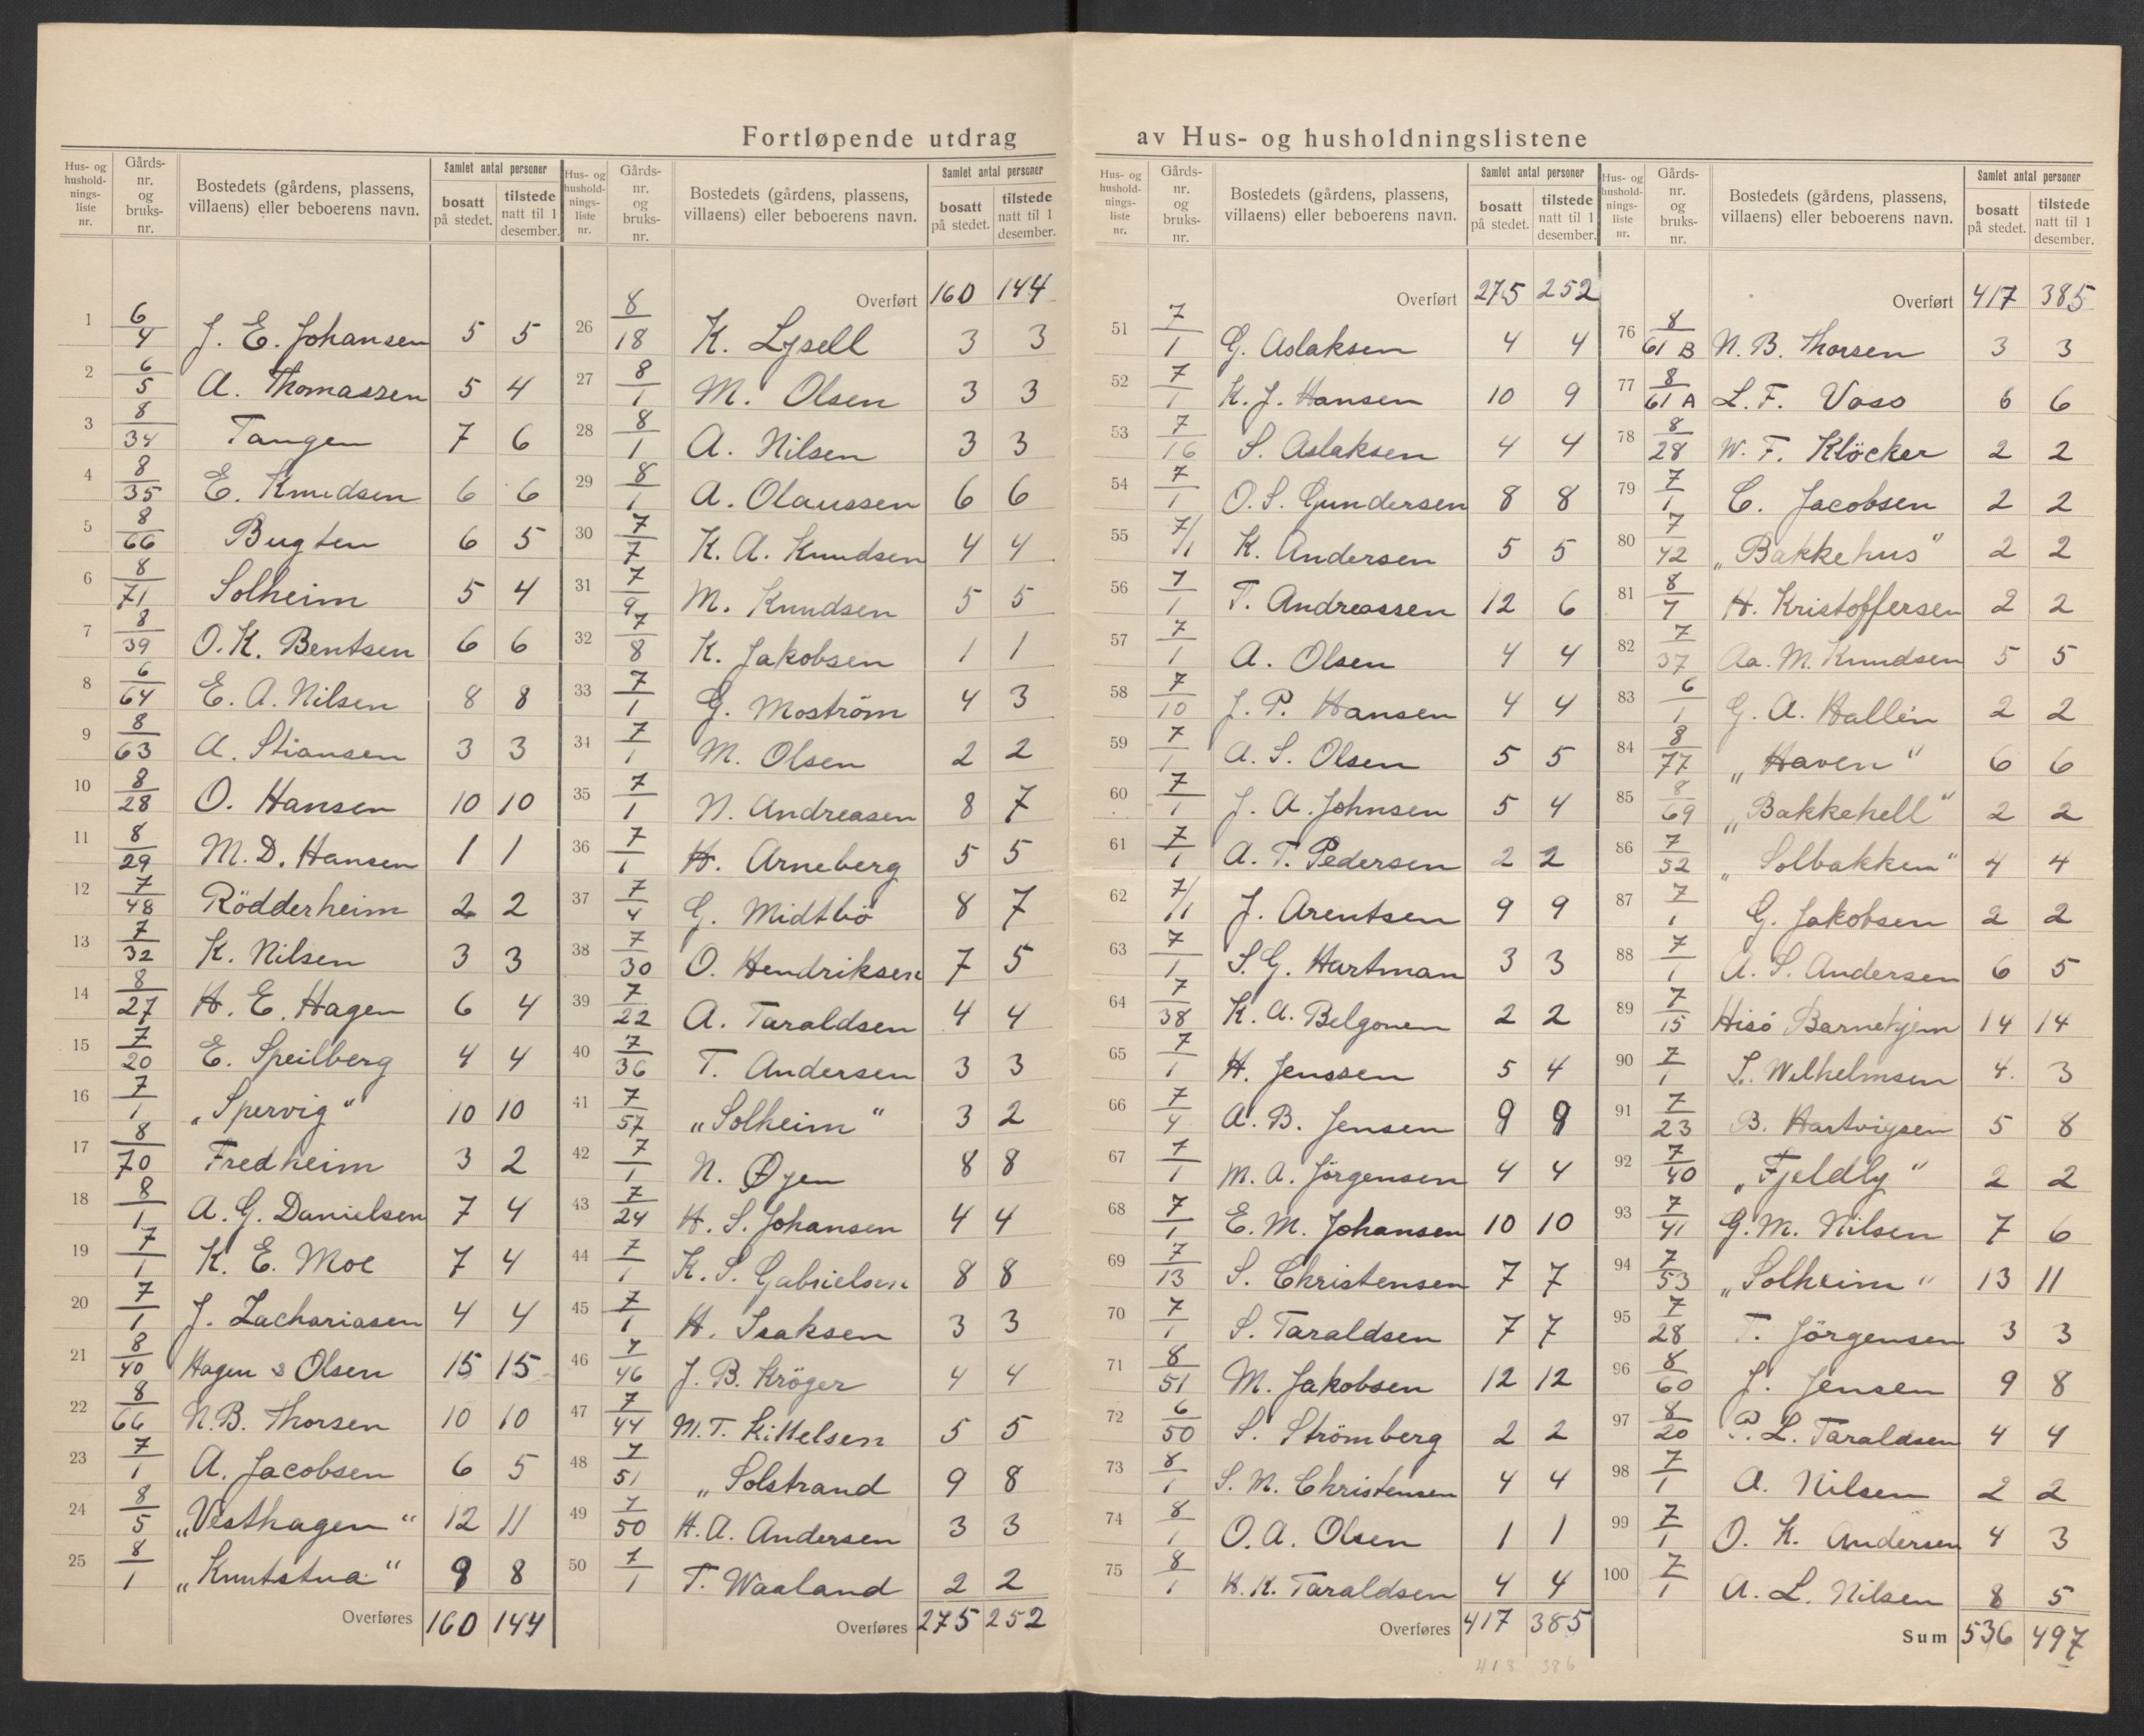 Fortløpende utdrag av Hus- og husholdningslistene
Hus- og husholdningsliste nr. | Gårdsnr. og bruksnr. | Bostedets (gårdens, plassens, villaens) eller beboerens navn. | Samlet antal personer | bosatt på stedet. | tilstede natt til 1 desember.
1 6/4 J. E. Johansen 5 5
2 6/5 A. Thomassen 5 4
3 8/34 Tangen 7 6
4 8/35 E. Knudsen 6 6
5 8/66 Bugten 6 5
6 8/71 Solheim 5 4
7 8/39 O. K. Bentsen 6 6
8 6/64 E. A. Nilsen 8 8
9 8/63 A. Stiansen 3 3
10 8/28 O. Hansen 10 10
11 8/29 M. D. Hansen 1 1
12 7/48 Rödderheim 2 2
13 7/32 K. Nilsen 3 3
14 8/27 H. E. Hagen 6 4
15 7/20 E. Speilberg 4 4
16 7/1 „Spervig" 10 10
17 8/70 Fredheim 3 2
18 8/1 A. G. Danielsen 7 4
19 7/1 K. E. Moe 7 4
20 7/1 J. Zachariasen 4 4
21 8/40 Hagen & Olsen 15 15
22 8/66 N. B. Thorsen 10 10
23 7/1 A. Jacobsen 6 5
24 8/5 „Vesthagen" 12 11
25 8/1 „Knutstua" 9 8
Overføres 160 144
Hus- og husholdningsliste nr. | Gårdsnr. og bruksnr. | Bostedets (gårdens, plassens, villaens) eller beboerens navn. | Samlet antal personer | bosatt på stedet. | tilstede natt til 1 desember.
Overført 160 144
26 8/18 K. Lysell 3 3
27 8/1 M. Olsen 3 3
28 8/1 A. Nilsen 3 3
29 8/1 A. Olaussen 6 6
30 7/7 K. A. Knudsen 4 4
31 7/9 M. Knudsen 5 5
32 7/8 K. Jakobsen 1 1
33 7/1 G. Moström 4 3
34 7/1 M. Olsen 2 2
35 7/1 N. Andreasen 8 7
36 7/1 H. Arneberg 5 5
37 7/4 G. Midtbö 8 7
38 7/30 O. Hendriksen 7 5
39 7/22 A. Taraldsen 4 4
40 7/36 T. Andersen 3 3
41 7/57 „Solheim" 3 2
42 7/1 N. Øyen 8 8
43 7/24 H. S. Johansen 4 4
44 7/1 K. S. Gabrielsen 8 8
45 7/1 H. Isaksen 3 3
46 7/46 J. B. Kröger 4 4
47 7/44 M. T. Kittelsen 5 5
48 7/51 „Solstrand 9 8
49 7/50 H. A. Andersen 3 3
50 7/1 T. Waaland 2 2
Overføres 275 252
Hus- og husholdningsliste nr. | Gårdsnr. og bruksnr. | Bostedets (gårdens, plassens, villaens) eller beboerens navn. | Samlet antal personer | bosatt på stedet. | tilstede natt til 1 desember.
Overført 275 252
51 7/1 G. Aslaksen 4 4
52 7/1 K. J. Hansen 10 9
53 7/16 S. Aslaksen 4 4
54 7/1 O. S. Gundersen 8 8
55 7/1 K. Andersen 5 5
56 7/1 T. Andreassen 12 6
57 7/1 A. Olsen 4 4
58 7/10 J. P. Hansen 4 4
59 7/1 A. S. Olsen 5 5
60 7/1 J. A. Johnsen 5 4
61 7/1 A. T. Pedersen 2 2
62 7/1 J. Arentsen 9 9
63 7/1 S. G. Hartman 3 3
64 7/38 K. A. Belgonen 2 2
65 7/1 H. Jenssen 5 4
66 7/4 A. B. Jensen 9 9
67 7/1 M. A. Jörgensen 4 4
68 7/1 E. M. Johansen 10 10
69 7/13 S. Christensen 7 7
70 7/1 S. Taraldsen 7 7
71 8/51 M. Jakobsen 12 12
72 6/50 S. Strömberg 2 2
73 8/1 S. M. Christensen 4 4
74 8/1 O. A. Olsen 1 1
75 8/1 K. K. Taraldsen 4 4
Overføres 417 385
418 386
Hus- og husholdningsliste nr. | Gårdsnr. og bruksnr. | Bostedets (gårdens, plassens, villaens) eller beboerens navn. | Samlet antal personer | bosatt på stedet. | tilstede natt til 1 desember.
Overført 417 385
76 8/61 B N. B. Thorsen 3 3
77 8/61 A L. F. Voso 6 6
78 8/28 W. F. Klöcker 2 2
79 7/1 C. Jacobsen 2 2
80 7/42 „Bakkehus" 2 2
81 8/7 H. Kristoffersen 2 2
82 7/37 Aa. M. Knudsen 5 5
83 6/1 G. A. Hallén 2 2
84 8/77 „Haven" 6 6
85 8/69 „Bakkehell" 2 2
86 7/52 „Solbakken" 4 4
87 7/1 G. Jakobsen 2 2
88 7/1 A. S. Andersen 6 5
89 7/15 Hisö Barnehjem 14 14
90 7/1 S. Wilhelmsen 4. 3
91 7/23 B. Hartvigsen 5 8
92 7/40 „Fjeldly" 2 2
93 7/41 G. M. Nilsen 7 6
94 7/53 „Solheim" 13 11
95 7/28 T. Jörgensen 3 3
96 8/60 J. Jensen 9 8
97 8/20 P. L. Taraldsen 4 4
98 7/1 A. Nilsen 2 2
99 7/1 O. K. Andersen 4 3
100 7/1 A. L. Nilsen 8 5
Sum 536 497